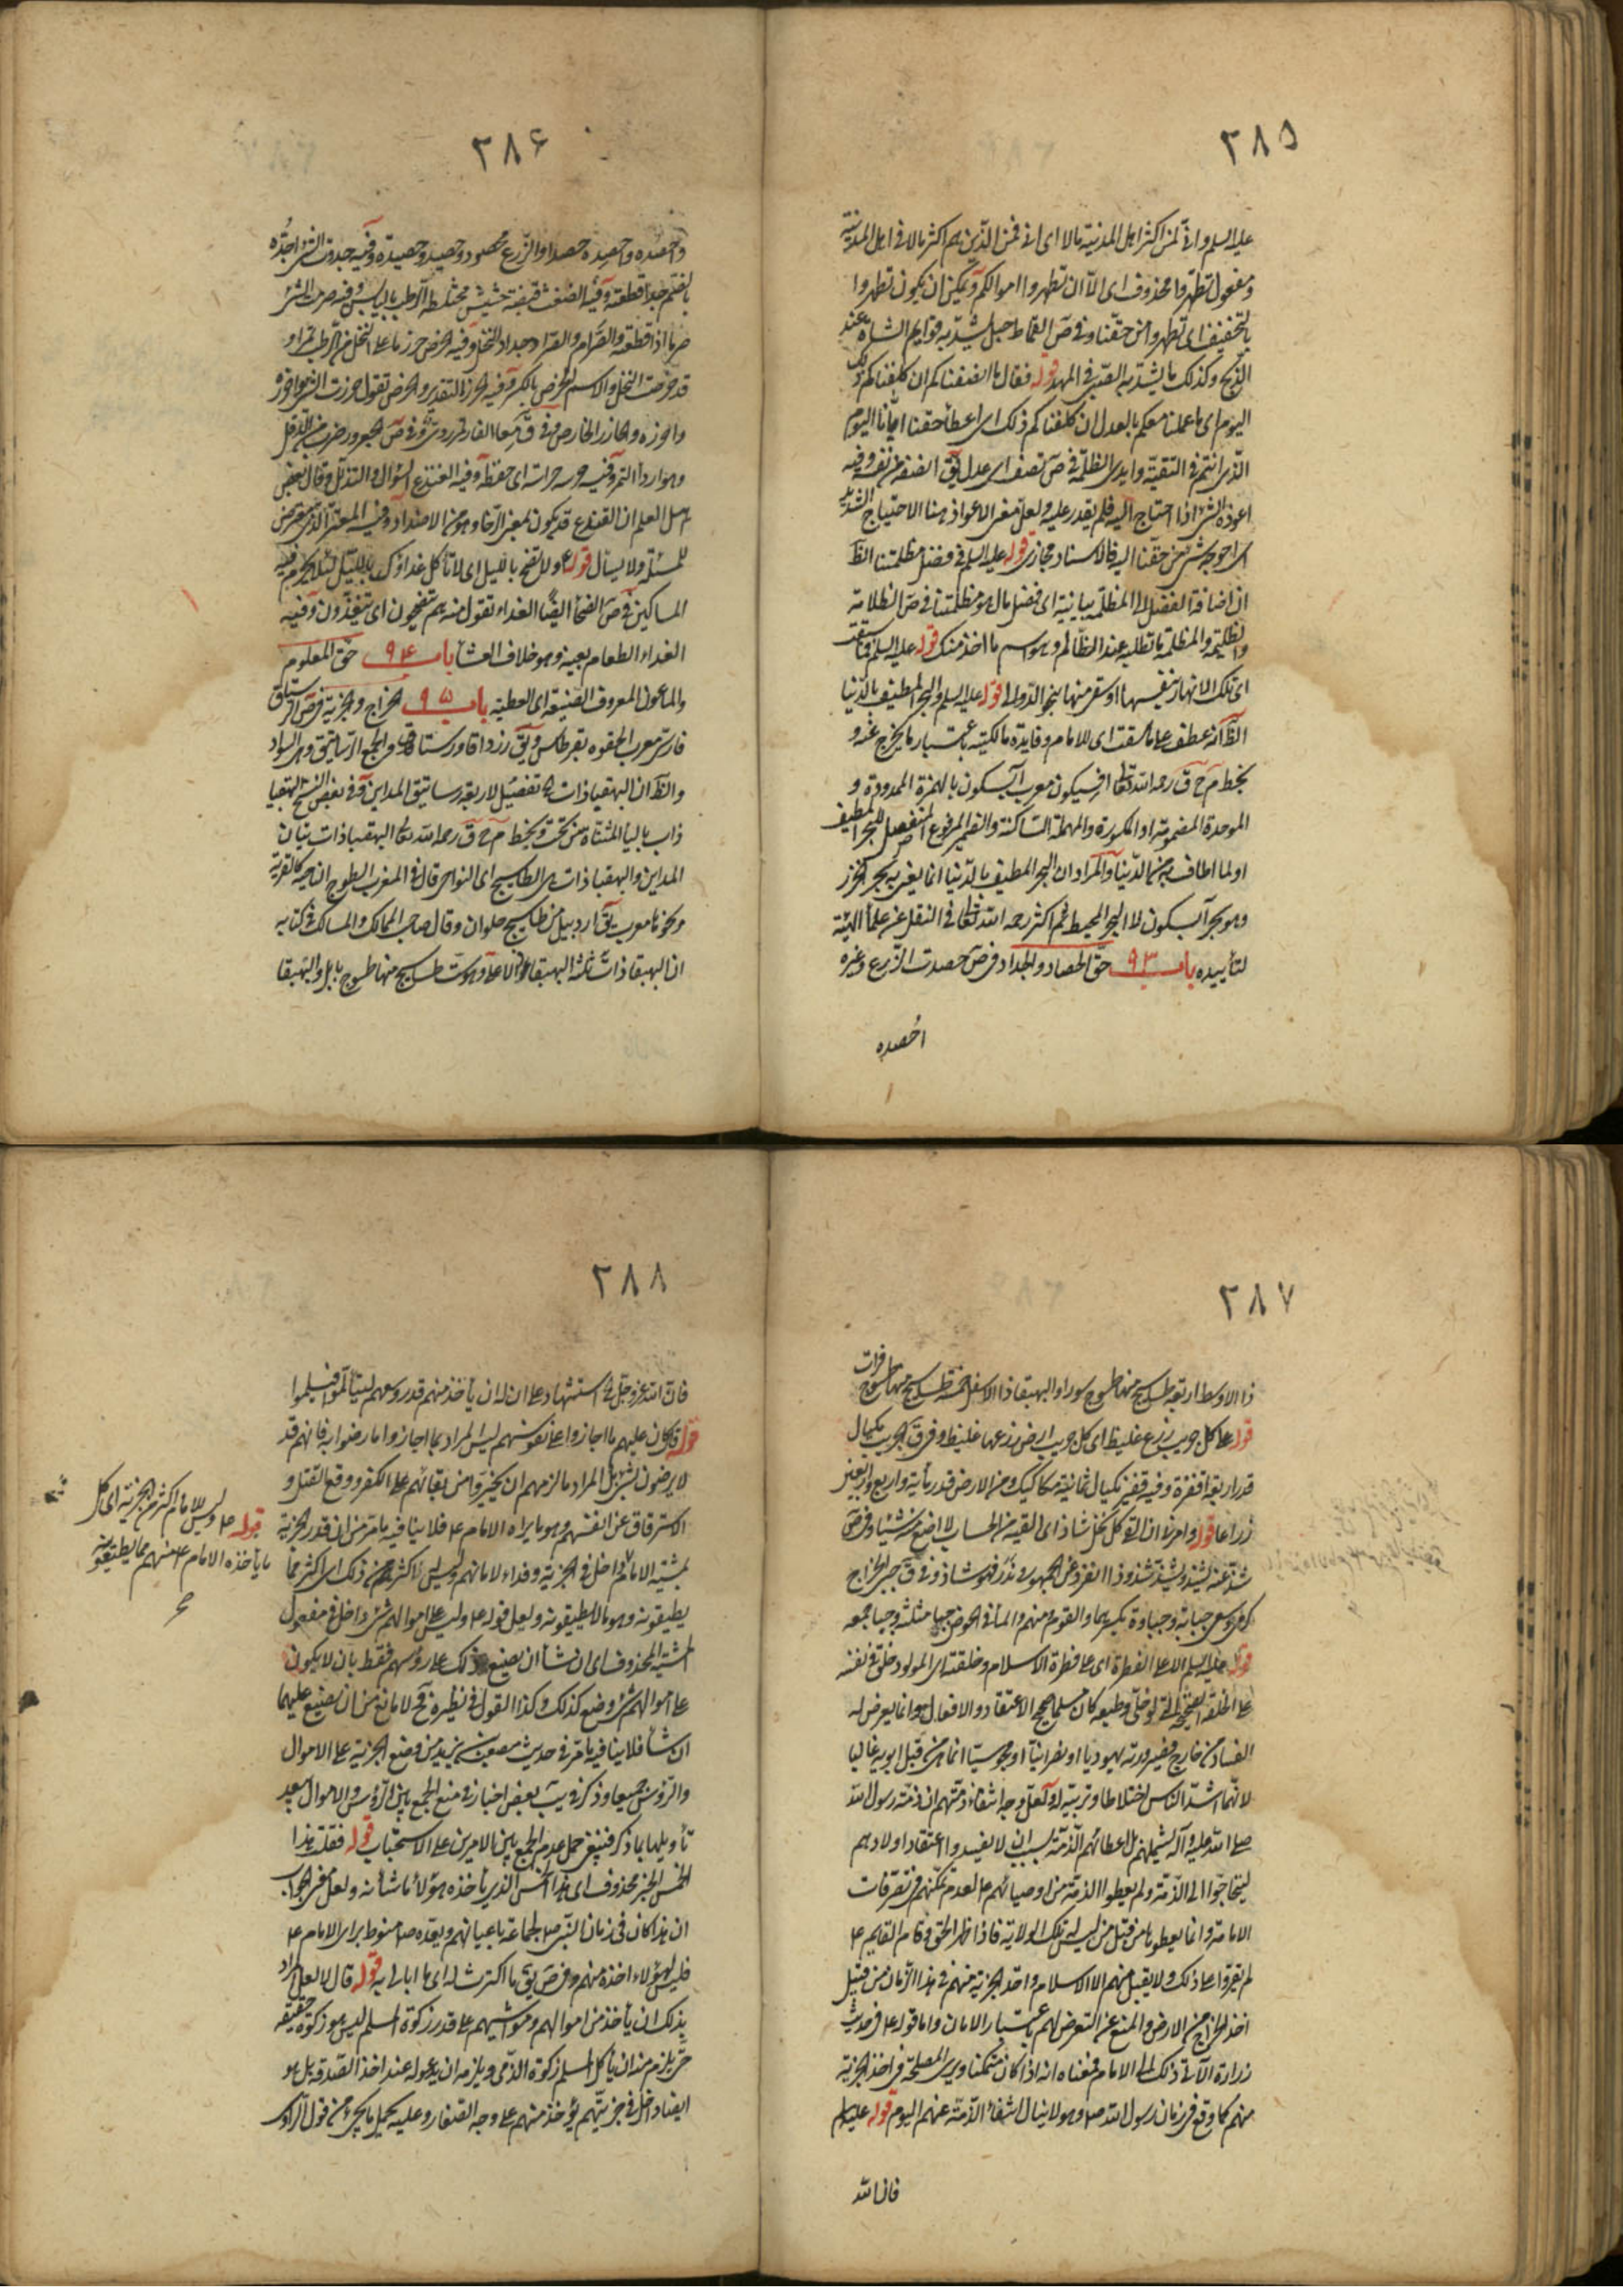 ٣٨٥
عليه السلم واني لمن اكثر اهل المدينة مالا اى انى فمن الذين هم اكثر مالا فى اهل المدينة
ومفعول تطهروا محذوف اى الا ان تطهروا اموالكم ويمكن ان يكون تطهروا
بالتخفيف اى تطهروا من حقنا وفى ص القماط حبل يشد به قوايم الشاة عند
الذبح وكذلك ما يشد به الصبى فى المهد قوله فقال ما انصفناكم ان كلفناكم ذلك
اليوم اى ما عملنا معكم بالعدل ان كلفناكم ذلك اى اعطاء حقنا ايانا اليوم
الذى انتم فى التقية وايدى الظلمة فى ص نصف اى عدل يق انصفه من نفسه وفيه
اعوذه الشئ اذا احتاج اليه فلم يقدر عليه ولعل معنى الاعواذ هنا الاحتياج الشديد
اى احوجه شئ من حقنا اليه فالاسناد مجازى قوله عليه السلم فى فضل مظلمتنا الظ
ان اضافة الفضل الى المظلمة بيانية اى فضل مال هو مظلمتنا فى ص الظلامة
والظليمة والمظلمة ما تطلبه عند الظالم وهو اسم ما اخذ منك قوله عليه السلم فما سقت
اى تلك الانهار بنفسها او سقى منها بنحو الدوالى قوله عليه السلم والبحر المطيف بالدنيا
الظ انه عطف على ما سقت اى للامام وفايدة مالكيته باعتبار ما يخرج منه و
بخط م ح ق رحمه الله تعالى افسيكون معرب آبسكون بالهمزة الممدودة و
الموحدة المضمومة او المكسورة والمهملة الساكنة والضمير المرفوع المنفصل للبحر المطيف
اولما اطاف به من الدنيا والمراد ان البحر المطيف بالدنيا انما يعنى به بحر الخزر
وهو بحر آبسكون لا البحر المحيط ثم اكثر رحمه الله تعالى فى النقل عن علماء الهيئة
لتأييده باب ٩٣ حق الحصاد والجداد فى ص حصدت الزرع وغيره
احصده
٣٨٦
واحصده واحصده حصدا والزرع محصود وحصيد وحصيدة وفيه جددت الشئ اجده
بالضم جدا قطعته وفيه الضغث قبضة حشيش مختلطة الرطب باليابس وفيه صرمت الشئ
صرما اذا قطعته والصرام والصرام جداد النخل وفيه الخرص حرز ما على النخل من الرطب تمرا و
قد خرصت النخل والاسم الخرص بالكسر وفيه الحرز التقدير والخرص تقول حرزت الشئ احرزه
واحرزه والحازر الخارص وفى ق معا الفارة تمر ردى وفى ص الجعرور ضرب من الدقل
وهو اردأ التمر وفيه حرسه حراسة اى حفظه وفيه القنوع السؤال والتذلل وقال بعض
اهل العلم ان القنوع قد يكون بمعنى الرضا وهو من الاضداد وفيه المعتر الذى يتعرض
للمسئلة ولا يسأل قوله ع ولا تضح بالليل اى لا تأكل غداؤك بالليل لئلا يحرم فيه
المساكين فى ص الضحاء ايضا الغداء تقول منه هم يتضحون اى يتغدون وفيه
الغداء الطعام بعينه وهو خلاف العشاء باب ٩٤ حق المعلوم
والماعول المعروف الصنيعة اى العطية باب ٩٥ الخراج والجزية فى ص الرستاق
فارسى معرب الحقوه بقرطاس ويق رزداق ورستاق والجمع الرساتيق وهى السواد
والظ ان البهقباذات ها تفصيل لاربعة رساتيق المداين وفى بعض النسخ البهقيا
ذات بالياء المثناة من تحت وبخط م ح ق رحمه الله تعالى البهقباذات بيان
المداين والبهقباذات هى الطساسيج اى النواحى قال فى المغرب الطسوج الناحية كالقرية
ونحوها معرب يق اردبيل من طساسيج حلوان وقال صاحب الممالك والمسالك فى كتابه
ان البهقباذات ثلثة البهقباذ الاعلى وهو ستة طساسيج منها طسوج بابل والبهقبا
٣٨٧
ذ الاوسط اربعة طساسيج منها طسوج سورا والبهقباذ الاسفل خمسة طساسيج منها طسوج فرات
قوله على كل جريب زرع غليظ اى كل جريب ارض زرعها غليظ وفى ق الجريب مكيال
قدر اربعة اقفزة وفيه قفيز مكيال ثمانية مكاكيك ومن الارض قدر مأية واربع واربعين
ذراعا قوله وامرنى ان القى كل نخل شاذ اى القيه من الحساب لا اضع منه شيئا وفى ص
شذ عنه يشذ ويشذ شذوذا انفرد عن الجمهور وندر فهو شاذ وفى ق جبى الخراج
كرمى وسعى جباية وجباوة بكسرهما والقوم منهم والماء فى الحوض جبا مثلثه وجبيا جمعه
قوله عليه السلم الا على الفطرة اى على فطرة الاسلام وخلقته اى المولود خلق فى نفسه
على الخلقة الصحيحة التى لو خلى وطبعه كان مسلما صحيح الاعتقاد والافعال وانما يعرض له
الفساد من خارج فصيرورته يهوديا او نصرانيا او مجوسيا انما هى من قبل ابويه غالبا
لانهما اشد الناس اختلاطا وتربية له ولعل وجه انتفاء ذمتهم ان ذمة رسول الله
صلى الله عليه وآله لم يشملهم بل اعطائهم الذمة بسبب ان لا يفسدوا اعتقاد اولادهم
ليحتاجوا الى الذمة ولم يعطوا الذمة من اوصيائهم ع لعدم تمكنهم فى تصرفات
الامامة وانما يعطوها من قبل من ليس له تلك الولاية فاذا ظهر الحق وقام القايم ع
لم يقروا على ذلك ولا يقبل منهم الا الاسلام واخذ الجزية منهم فى هذا الزمان من قبيل
اخذ الخراج من الارض والمنع عن التعرض لهم باعتبار الامان واما قوله ع فى حديث
زرارة الآتى ذلك الى الامام فمعناه انه اذا كان متمكنا ويرى المصلحة فى اخذ الجزية
منهم كما وقع فى زمان رسول الله ص وهو لا ينافى انتفاء الذمة عنهم اليوم قوله عليه السلم
فان الله
٣٨٨
فان الله عز وجل استشهاد على ان له ان يأخذ منهم قدر وسعهم ليتألموا فيسلموا
قوله فكان عليهم ما اجازوا على نفوسهم ليس المراد بما اجازوا ما رضوا به فانهم قد
لا يرضون بشئ بل المراد ما الزمهم ان يخيروا من بقائهم على الكفر ووقع القتل و
الاسترقاق عن انفسهم وهو ما يراه الامام ع فلا ينافيه ما مر من ان قدر الجزية
بمشية الامام داخل فى الجزية وفداء لامانهم وليس اكثر من ذلك اى اكثر مما
يطيقونه وهو ما لا يطيقونه ولعل قوله ع وليس على اموالهم شئ داخل فى مفعول
المشية المحذوف اى ان شاء ان يضع ذلك على رؤسهم فقط بان لا يكون
على اموالهم شئ وضع كذلك وكذا القول فى نظيره فح لا مانع من ان يضع عليهما
ان شاء فلا ينافيه ما مر فى حديث مصعب بن يزيد من وضع الجزية على الاموال
والرؤس جميعا وذكر فى يب بعض اخبار فى منع الجمع بين الرؤس والاموال بعيد
تأويلها بما ذكر فينبغى حمل عدم الجمع بين الامرين على الاستحباب قوله فقلت هذا
الخمس الخبر محذوف اى هذا الخمس الذى يأخذه هؤلاء ما شأنه ولعل معنى الجواب
ان هذا كان فى زمان النبى ص لجماعة باعيانهم وبعده ص منوط براى الامام ع
فليس لهؤلاء اخذه منهم وفى ص يق ما اكترث له اى ما ابالى به قوله قال لا لعل المراد
بذلك ان يأخذ من اموالهم ومواشيهم على قدر زكوة المسلم ليس هو زكوة حقيقة
حتى يلزم منه ان يأكل المسلم زكوة الذمى ويلزمه ان يدعو له عند اخذ الصدقة بل هو
ايضا داخل فى جزيتهم يؤخذ منهم على وجه الصغار وعليه يحمل ما يجئ من قول الراوى
قوله ع وليس للامام اكثر من الجزية اى كل
ما يأخذه الامام ع منهم مما يطيقونه